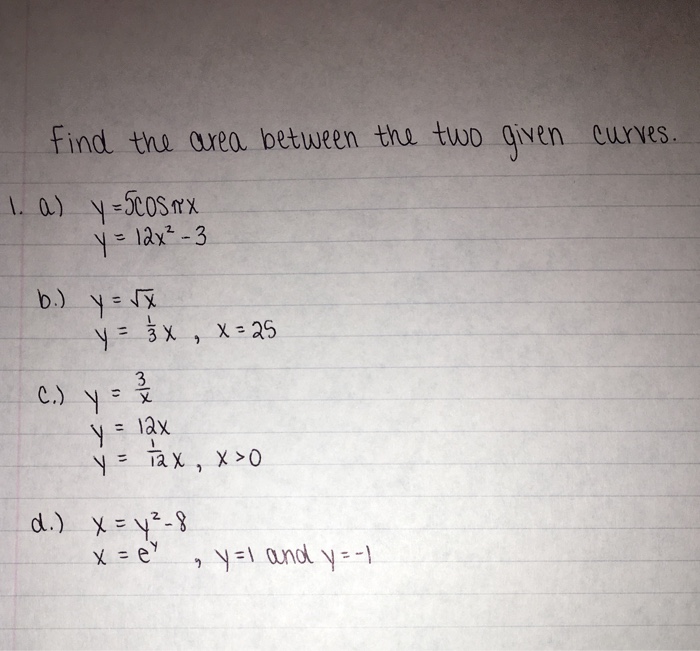 Find the area between the two given curves.
1. a) y = 5cosπx
y = 12x² - 3
b.) y = √x
y = 1/3 x , x = 25
c.) y = 3/x
y = 12x
y = 1/12 x , x > 0
d.) x = y² - 8
x = eʸ , y = 1 and y = -1